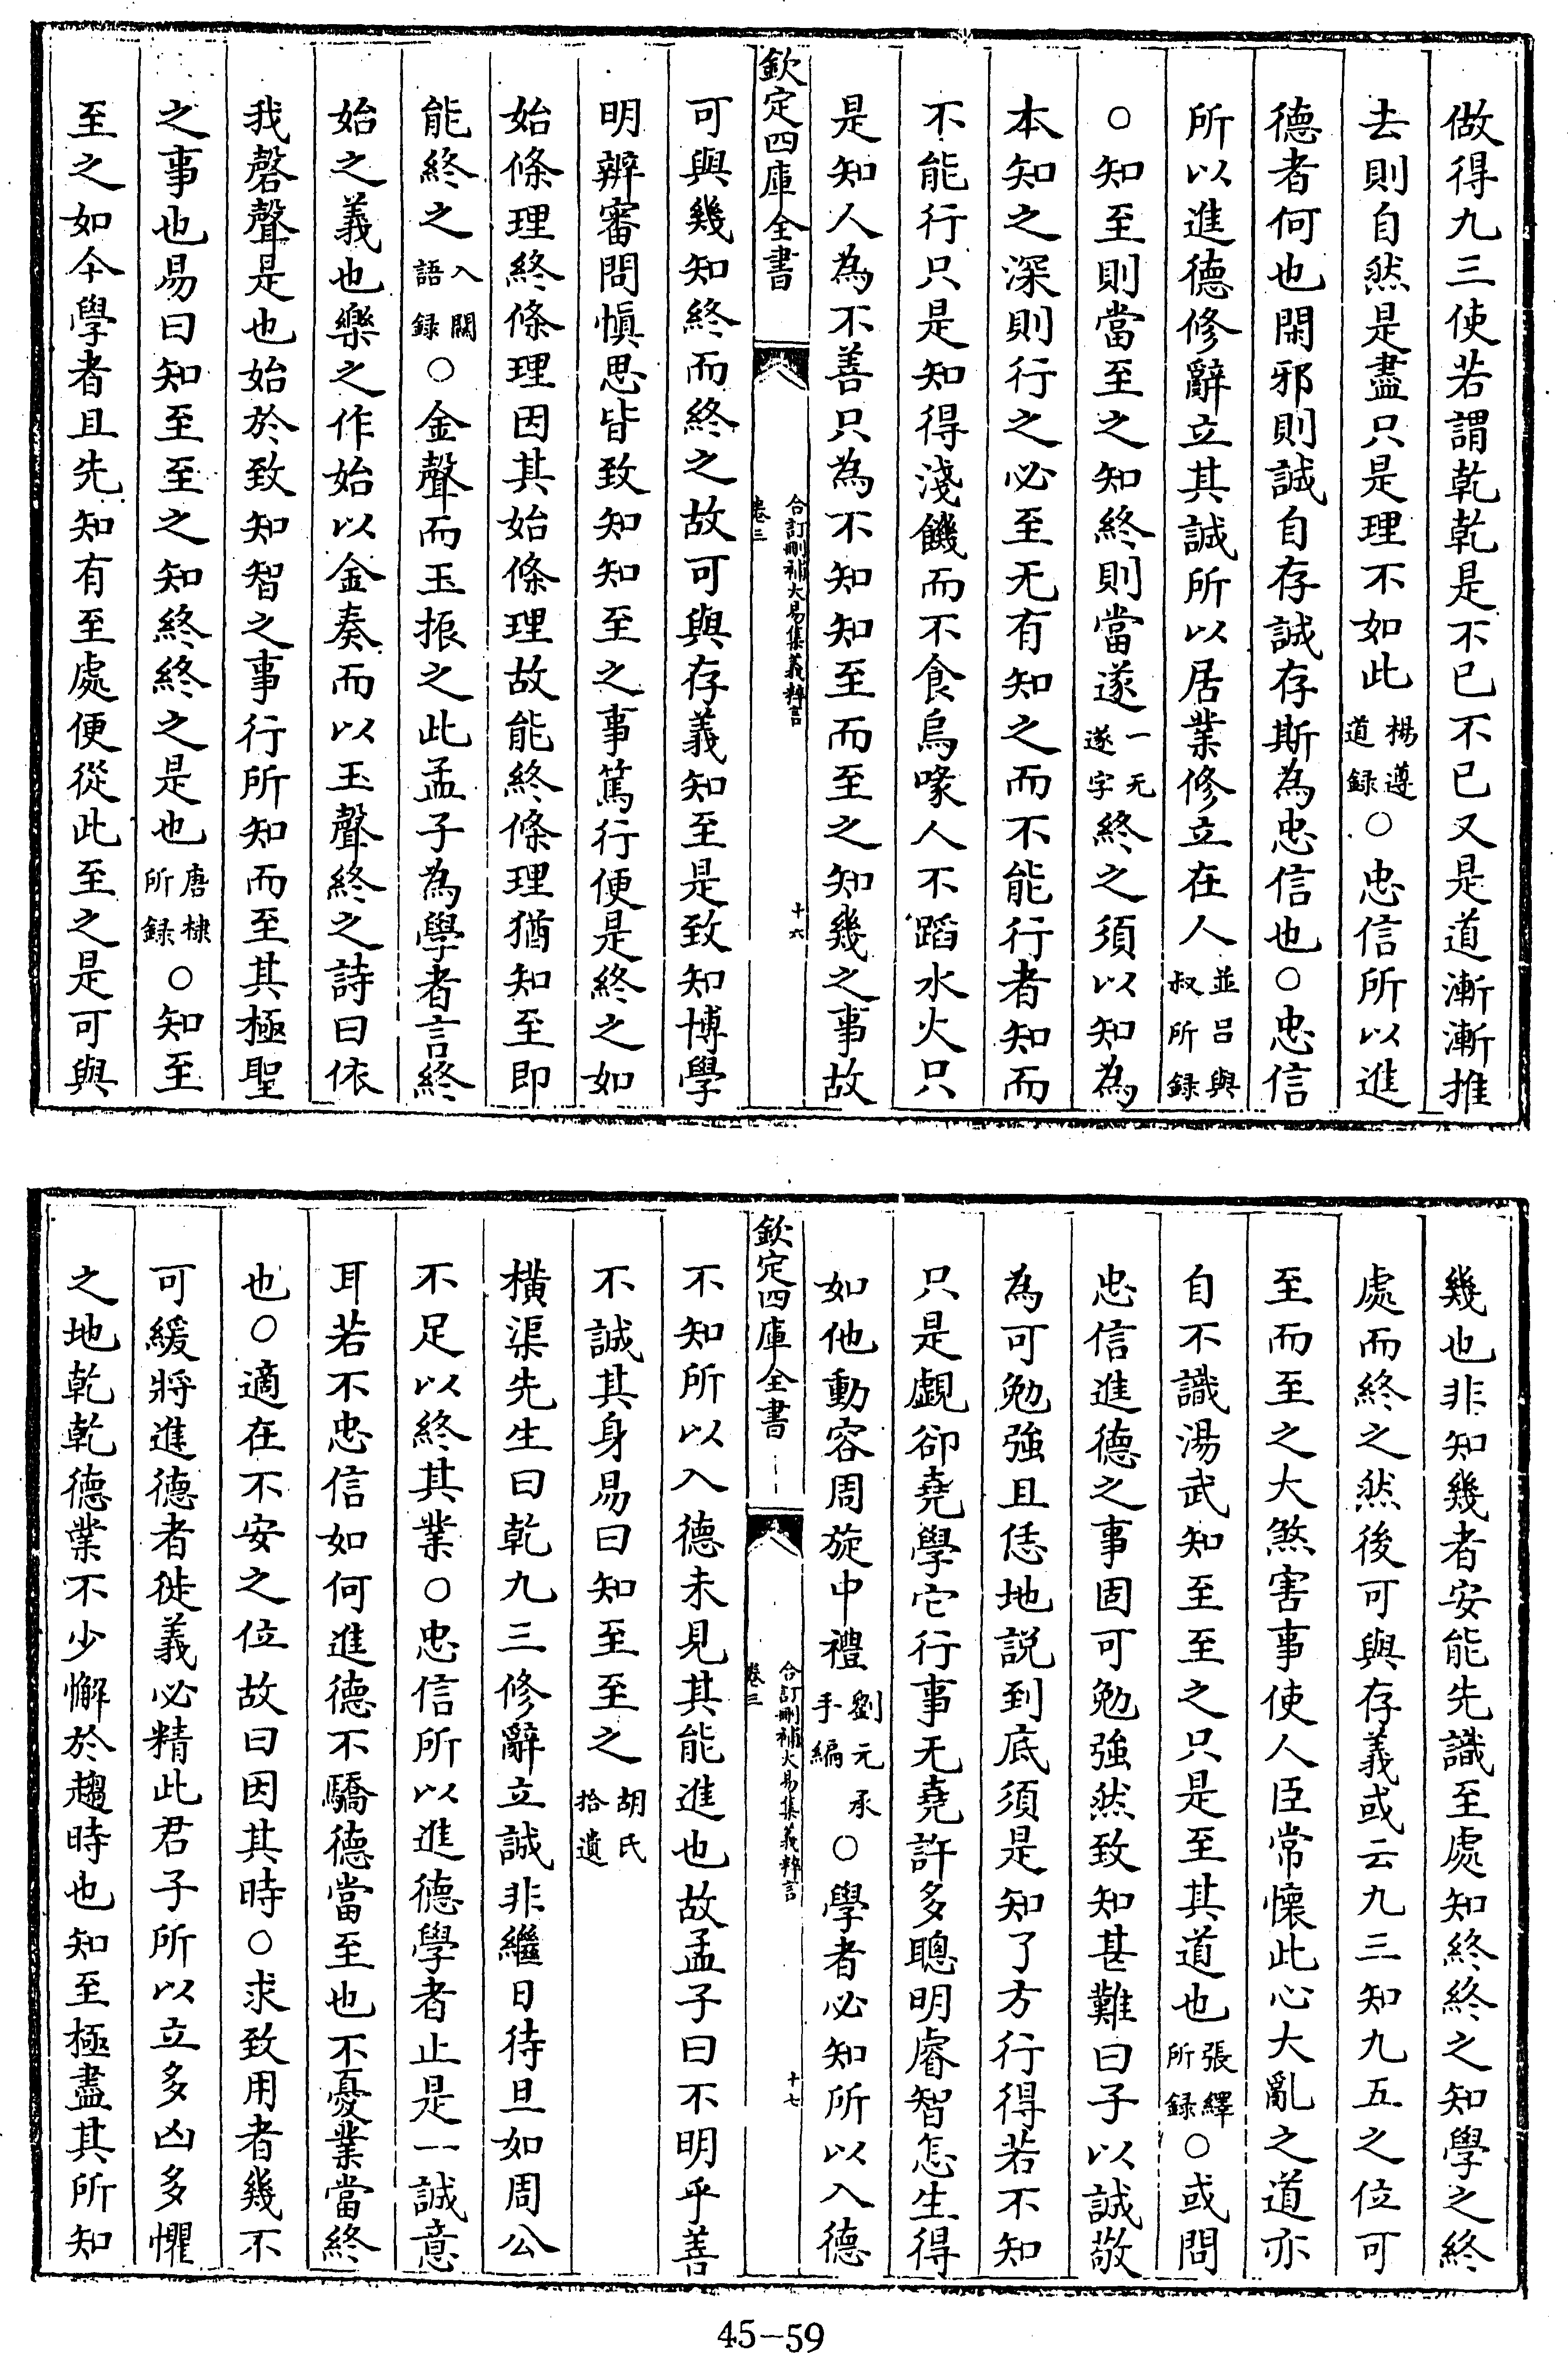 做得九三使若謂乾乾是不已不已又是道漸漸推
去則自然是盡只是理不如此楊遵道録○忠信所以進
德者何也閑邪則誠自存誠存斯為忠信也○忠信
所以進德修辭立其誠所以居業修立在人並吕與叔所録
○知至則當至之知終則當遂一无遂字終之須以知為
本知之深則行之必至无有知之而不能行者知而
不能行只是知得淺饑而不食烏喙人不蹈水火只
是知人為不善只為不知知至而至之知幾之事故
欽定四庫全書
合訂刪補大易集義粹言
卷三
十六
可與幾知終而終之故可與存義知至是致知博學
明辨審問慎思皆致知知至之事篤行便是終之如
始條理終條理因其始條理故能終條理猶知至即
能終之入關語録○金聲而玉振之此孟子為學者言終
始之義也樂之作始以金奏而以玉聲終之詩曰依
我磬聲是也始於致知智之事行所知而至其極聖
之事也易曰知至至之知終終之是也唐棣所録○知至
至之如今學者且先知有至處便從此至之是可與
幾也非知幾者安能先識至處知終終之知學之終
處而終之然後可與存義或云九三知九五之位可
至而至之大煞害事使人臣常懷此心大亂之道亦
自不識湯武知至至之只是至其道也張繹所録○或問
忠信進德之事固可勉強然致知甚難曰子以誠敬
為可勉強且恁地説到底須是知了方行得若不知
只是覷卻堯學它行事无堯許多聰明睿智怎生得
如他動容周旋中禮劉元承手編○學者必知所以入德
欽定四庫全書
合訂刪補大易集義粹言
卷三
十七
不知所以入德未見其能進也故孟子曰不明乎善
不誠其身易曰知至至之胡氏拾遺
橫渠先生曰乾九三修辭立誠非繼日待旦如周公
不足以終其業○忠信所以進德學者止是一誠意
耳若不忠信如何進德不驕德當至也不憂業當終
也○適在不安之位故曰因其時○求致用者幾不
可緩將進德者徙義必精此君子所以立多凶多懼
之地乾乾德業不少懈於趨時也知至極盡其所知
45-59